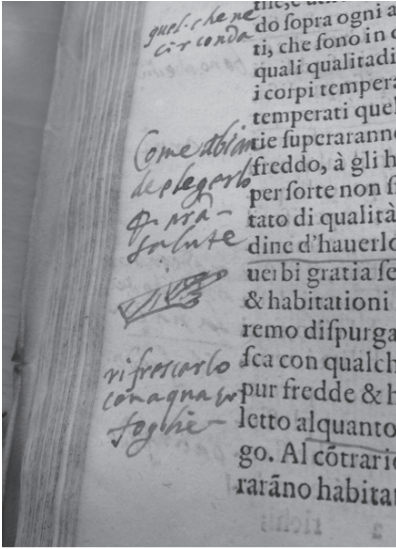 quel. che ne
circonda
Come abian
de elegerlo
salute
rifrescarlo
con aqua
foglie
do ſopra ogni a
ti, che ſono in
quali qualitadi
i corpi tempera
temperati quel
tie ſuperaranno
freddo, à gli h
per ſorte non ſi
tato di qualità
dine d'hauerlo
uerbi gratia ſe
& habitationi
remo diſpurga
ſca con qualch
pur fredde & h
letto alquanto
go. Al cõtrario
rarãno habitat